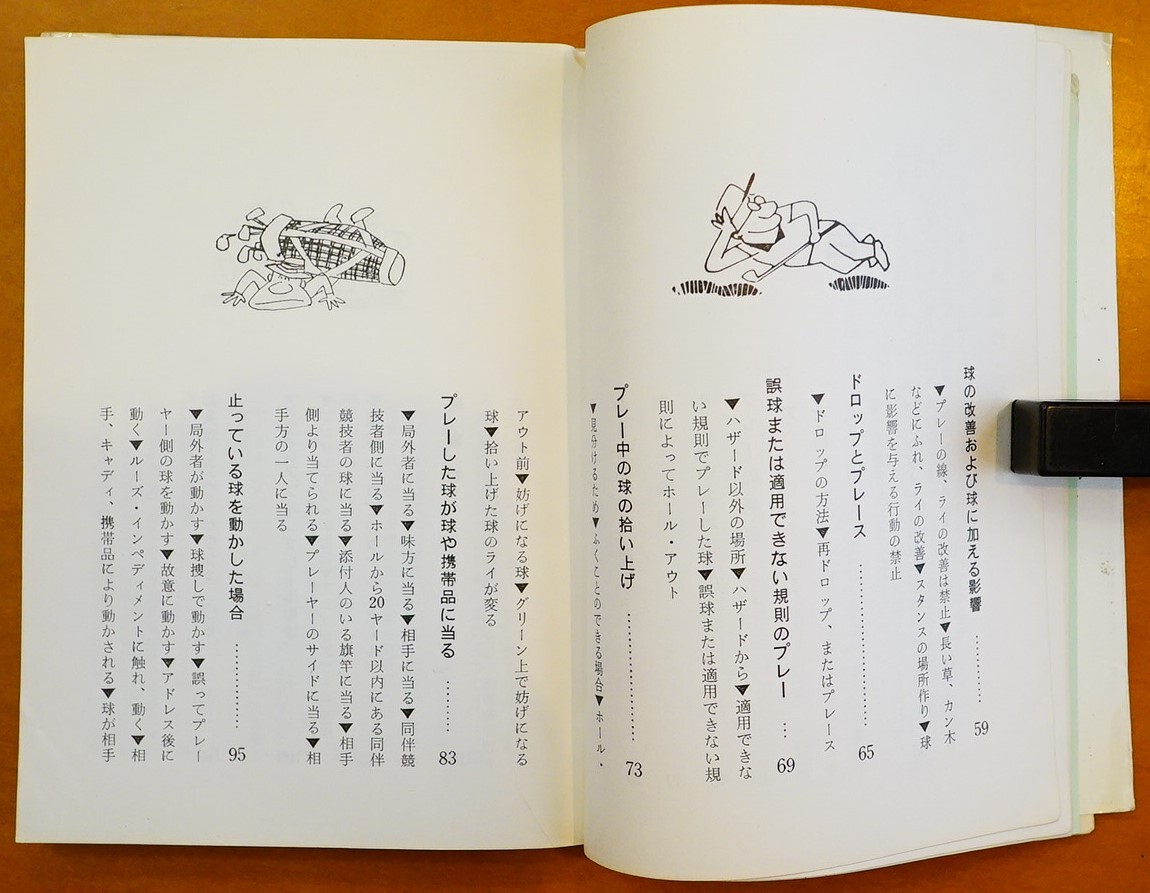 球の改善および球に加える影響 ………… 59
▼プレーの線、ライの改善は禁止▼長い草、カン木
などにふれ、ライの改善▼スタンスの場所作り▼球
に影響を与える行動の禁止
ドロップとプレース ………………… 65
▼ドロップの方法▼再ドロップ、またはプレース
誤球または適用できない規則のプレー … 69
▼ハザード以外の場所▼ハザードから▼適用できな
い規則でプレーした球▼誤球または適用できない規
則によってホール・アウト
プレー中の球の拾い上げ ……………… 73
▼見分けるため▼ふくことのできる場合▼ホール・
アウト前▼妨げになる球▼グリーン上で妨げになる
球▼拾い上げた球のライが変る
プレーした球が球や携帯品に当る ……… 83
▼局外者に当る▼味方に当る▼相手に当る▼同伴競
技者側に当る▼ホールから20ヤード以内にある同伴
競技者の球に当る▼添付人のいる旗竿に当る▼相手
側より当てられる▼プレーヤーのサイドに当る▼相
手方の一人に当る
止っている球を動かした場合 ………… 95
▼局外者が動かす▼球捜しで動かす▼誤ってプレー
ヤー側の球を動かす▼故意に動かす▼アドレス後に
動く▼ルーズ・インペディメントに触れ、動く▼相
手、キャディ、携帯品により動かされる▼球が相手